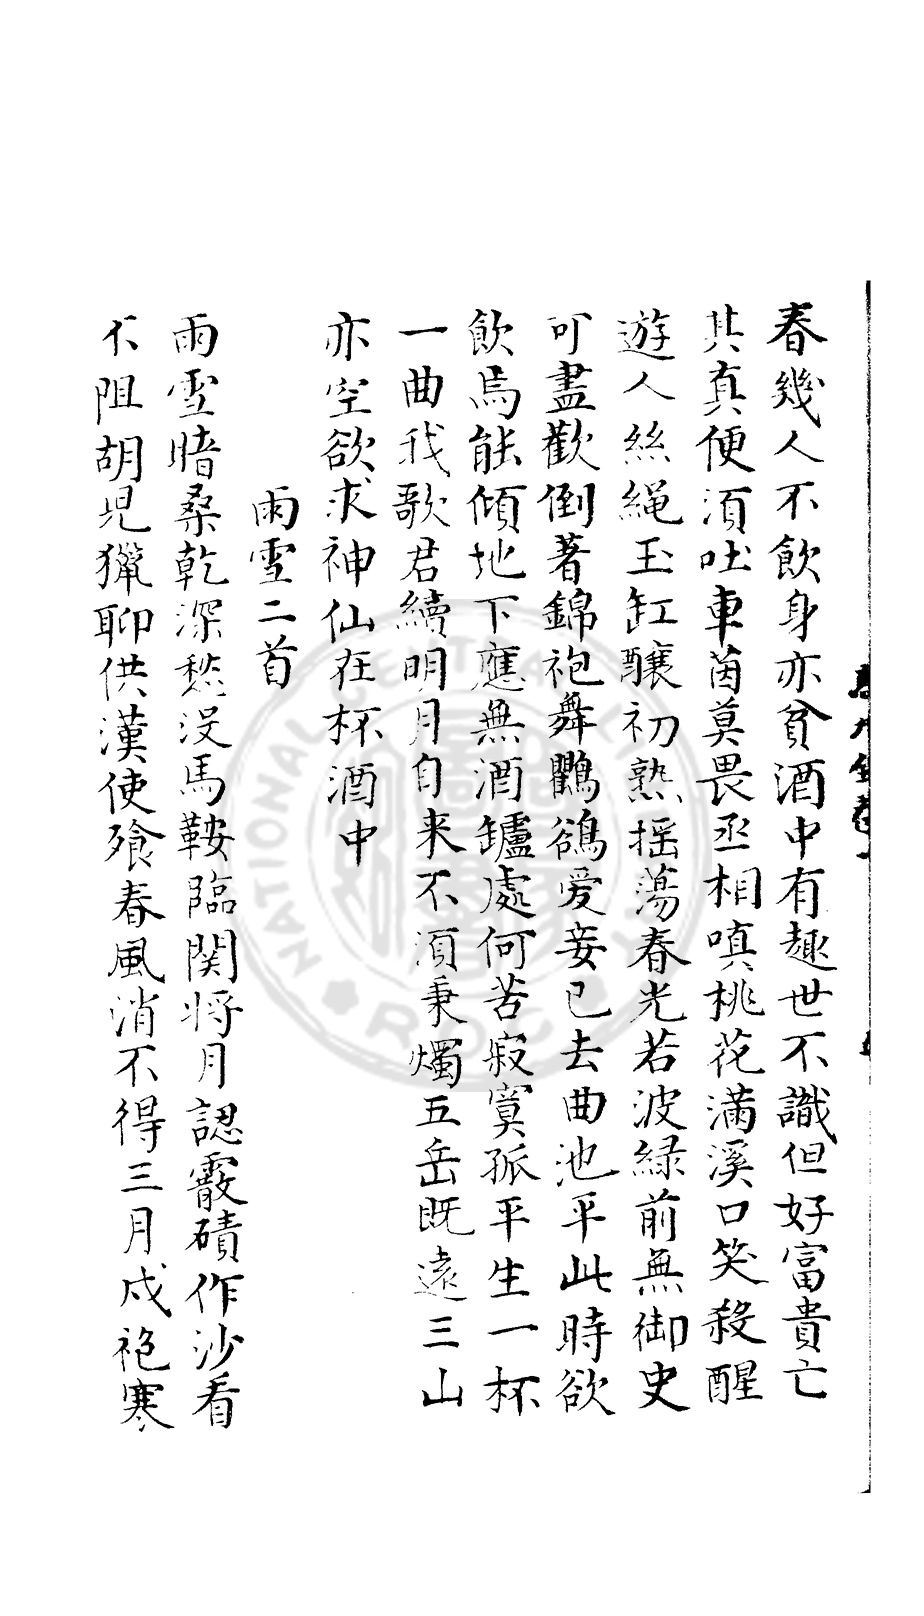 春幾人不飲身亦貧酒中有趣世不識但好富貴亡
其真便須吐車茵莫畏丞相嗔桃花滿溪口笑殺醒
遊人絲繩玉缸釀初熟搖蕩春光若波綠前無御史
可盡歡倒著錦袍舞鸜鵒爱妾已去曲池平此時欲
飲焉能傾地下應無酒罏處何苦寂寞孤平生一杯
一曲我歌君續明月自来不須秉燭五岳既遠三山
亦空欲求神仙在杯酒中
雨雪二首
雨雪暗桑乾深愁没馬鞍臨関将月認霰磧作沙看
不阻胡児獵聊供漢使飱春風消不得三月戍袍寒
NATIONAL CENTRAL LIBRARY
R.O.C.